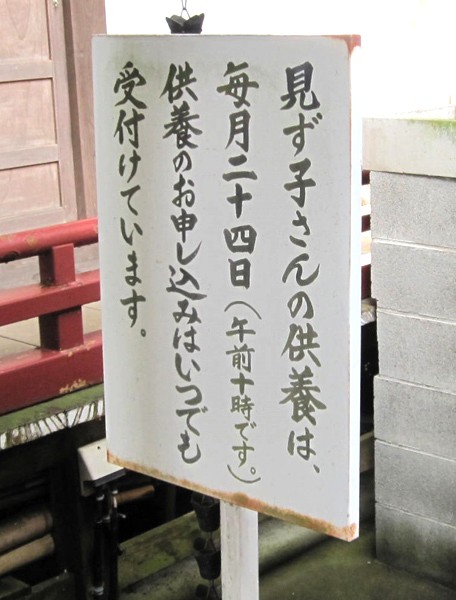 見ず子さんの供養は、
毎月二十四日(午前十時です。)
供養のお申し込みはいつでも
受付けています。